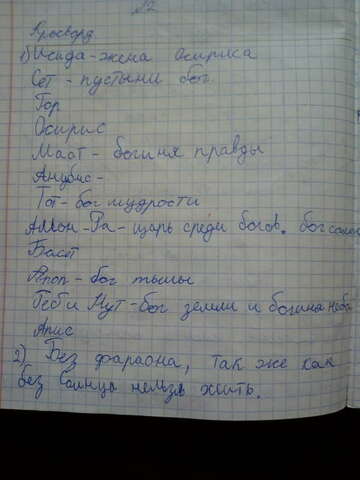 12
Кросворд
1) Исида - жена Осириса
Сет - пустыни бог.
Гор
Осирис
Маат - богиня правды
Анубис -
Тот - бог мудрости
Амон - Ра - царь среди богов. бог
Баст
Апоп - бог тьмы
Геб и Нут - бог земли и богиня неба
Апис
2) Без фараона, так же как
без Солнца нельзя жить.